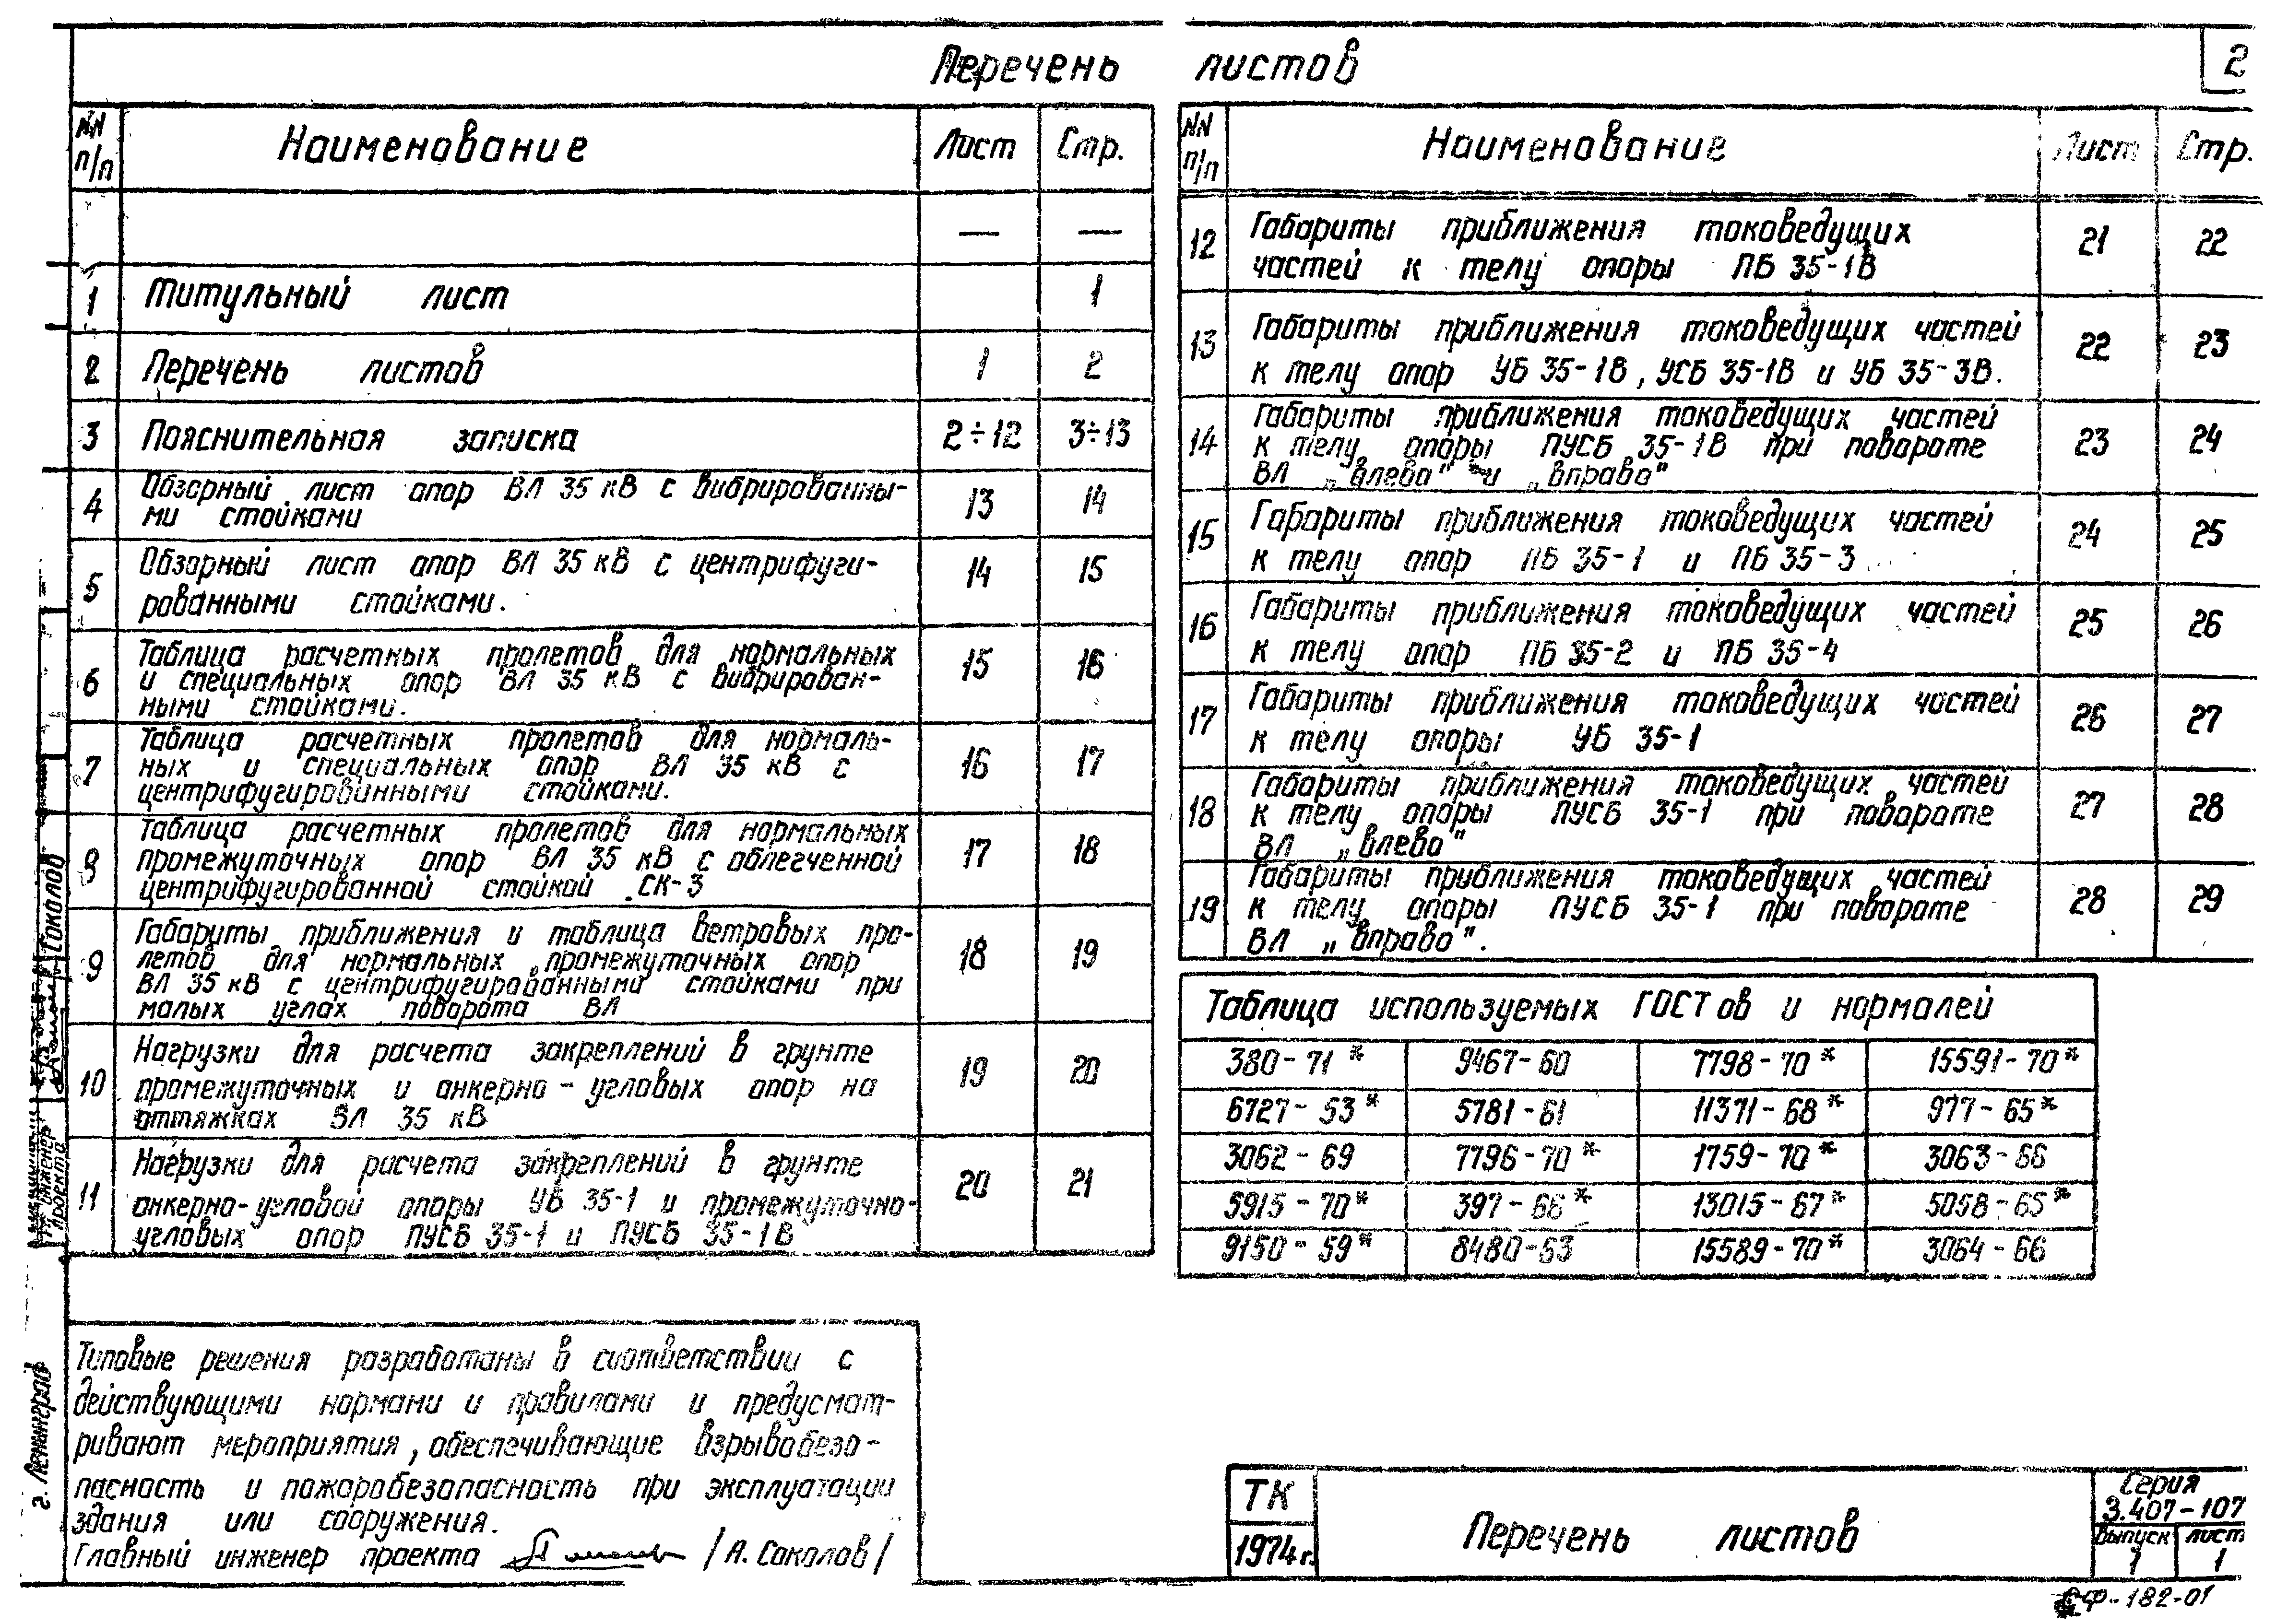 Перечень листов
2
NN п/п Наименование Лист Стр.
— —
1 Титульный лист 1
2 Перечень листов 1 2
3 Пояснительная записка 2÷12 3÷13
4 Обзорный лист опор ВЛ 35 кВ с вибрированны-
ми стойками 13 14
5 Обзорный лист опор ВЛ 35 кВ с центрифуги-
рованными стойками. 14 15
6 Таблица расчетных пролетов для нормальных
и специальных опор ВЛ 35 кВ с вибрирован-
ными стойками. 15 16
7 Таблица расчетных пролетов для нормаль-
ных и специальных опор ВЛ 35 кВ с
центрифугированными стойками. 16 17
8 Таблица расчетных пролетов для нормальных
промежуточных опор ВЛ 35 кВ с облегченной
центрифугированной стойкой СК-3 17 18
9 Габариты приближения и таблица ветровых про-
летов для нормальных промежуточных опор
ВЛ 35 кВ с центрифугированными стойками при
малых углах поворота ВЛ 18 19
10 Нагрузки для расчета закреплений в грунте
промежуточных и анкерно-угловых опор на
оттяжках ВЛ 35 кВ 19 20
11 Нагрузки для расчета закреплений в грунте
анкерно-угловой опоры УБ 35-1 и промежуточно-
угловых опор ПУСБ 35-1 и ПУСБ 35-1В 20 21
NN п/п Наименование Лист Стр.
12 Габариты приближения токоведущих
частей к телу опоры ПБ 35-1В 21 22
13 Габариты приближения токоведущих частей
к телу опор УБ 35-1В, УСБ 35-1В и УБ 35-3В. 22 23
14 Габариты приближения токоведущих частей
к телу опоры ПУСБ 35-1В при повороте
ВЛ „влево" и „вправо" 23 24
15 Габариты приближения токоведущих частей
к телу опор ПБ 35-1 и ПБ 35-3 24 25
16 Габариты приближения токоведущих частей
к телу опор ПБ 35-2 и ПБ 35-4 25 26
17 Габариты приближения токоведущих частей
к телу опоры УБ 35-1 26 27
18 Габариты приближения токоведущих частей
к телу опоры ПУСБ 35-1 при повороте
ВЛ „влево" 27 28
19 Габариты приближения токоведущих частей
к телу опоры ПУСБ 35-1 при повороте
ВЛ „вправо". 28 29
Таблица используемых ГОСТов и нормалей
380-71* 9467-60 7798-70* 15591-70*
6727-53* 5781-61 11371-68* 977-65*
3062-69 7796-70* 1759-70* 3063-66
5915-70* 397-66* 13015-67* 5058-65*
9150-59* 8480-63 15589-70* 3064-66
Типовые решения разработаны в соответствии с
действующими нормами и правилами и предусмат-
ривают мероприятия, обеспечивающие взрывобезо-
пасность и пожаробезопасность при эксплуатации
здания или сооружения.
Главный инженер проекта /А. Соколов/
г. Ленинград
Соколов
проекта
ТК
1974г.
Перечень листов
Серия
3.407-107
Выпуск 1
лист 1
СФ-182-01